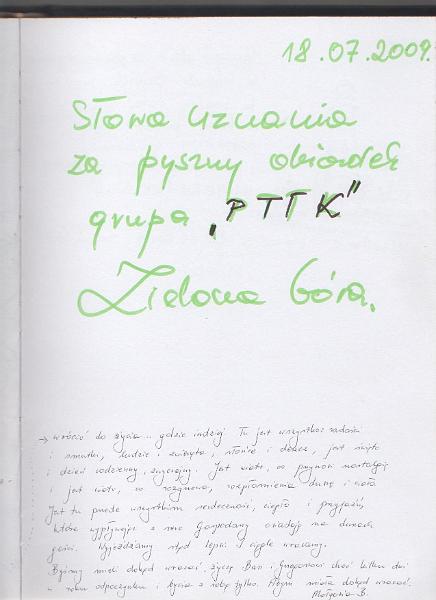 18.07.2009.
Słowa uznania
za pyszny obiadek
grupa „PTTK”
Zielona Góra.
→ wrócić do życia.. gdzie indziej. Tu jest wszystko: radości
i smutki, ludzie i zwierzęta, słońce i deszcz, jest święto
i dzień codzienny, zwyczajny. Jest wiatr, co przynosi nostalgię
i jest wiatr, co rozgrzewa, rozpłomienia duszę i ciało.
Jest tu przede wszystkim serdeczność, ciepło i przyjaźń,
które wypływając z serc Gospodarzy osiadają na duszach
gości. Wyjeżdżamy stąd lepsi i ciągle wracamy.
Byśmy mieli dokąd wracać, życzę Basi i Grzegorzowi choć kilku dni
w roku odpoczynku i bycia z sobą tylko. Abym miała dokąd wracać.
Małgosia B.